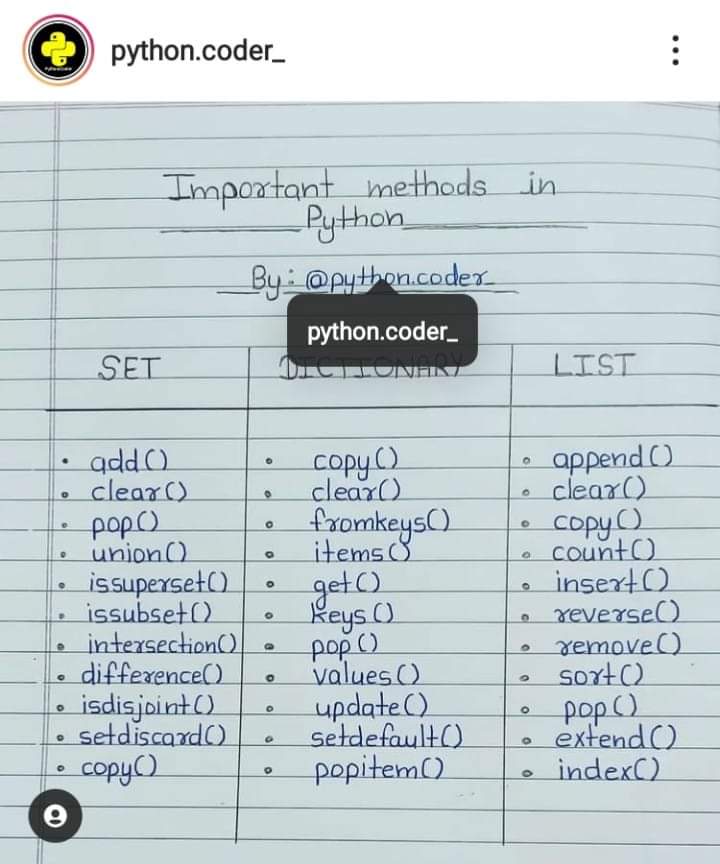 python.coder_
Important methods in
Python
By: @python.coder_
python.coder_
SET DICTIONARY LIST
• add() • copy() • append()
• clear() • clear() • clear()
• pop() • fromkeys() • copy()
• union() • items() • count()
• issuperset() • get() • insert()
• issubset() • keys() • reverse()
• intersection() • pop() • remove()
• difference() • values() • sort()
• isdisjoint() • update() • pop()
• setdiscard() • setdefault() • extend()
• copy() • popitem() • index()